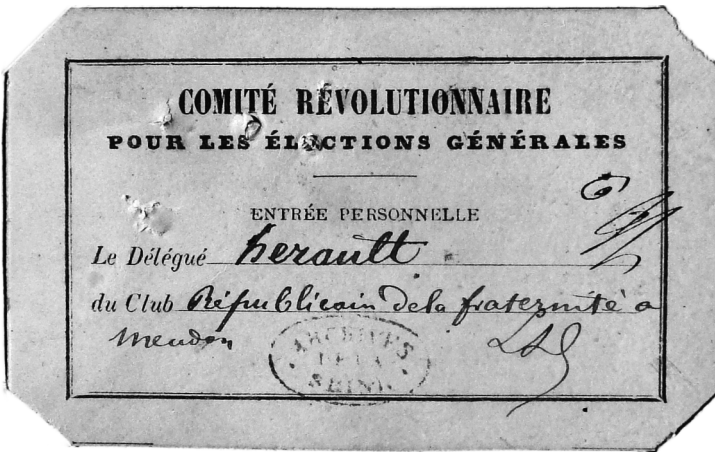 COMITÉ RÉVOLUTIONNAIRE
POUR LES ÉLECTIONS GÉNÉRALES
ENTRÉE PERSONNELLE
Le Délégué herault
du Club Républicain de la fraternité a
meudon
ARCHIVES
DE LA
SEINE